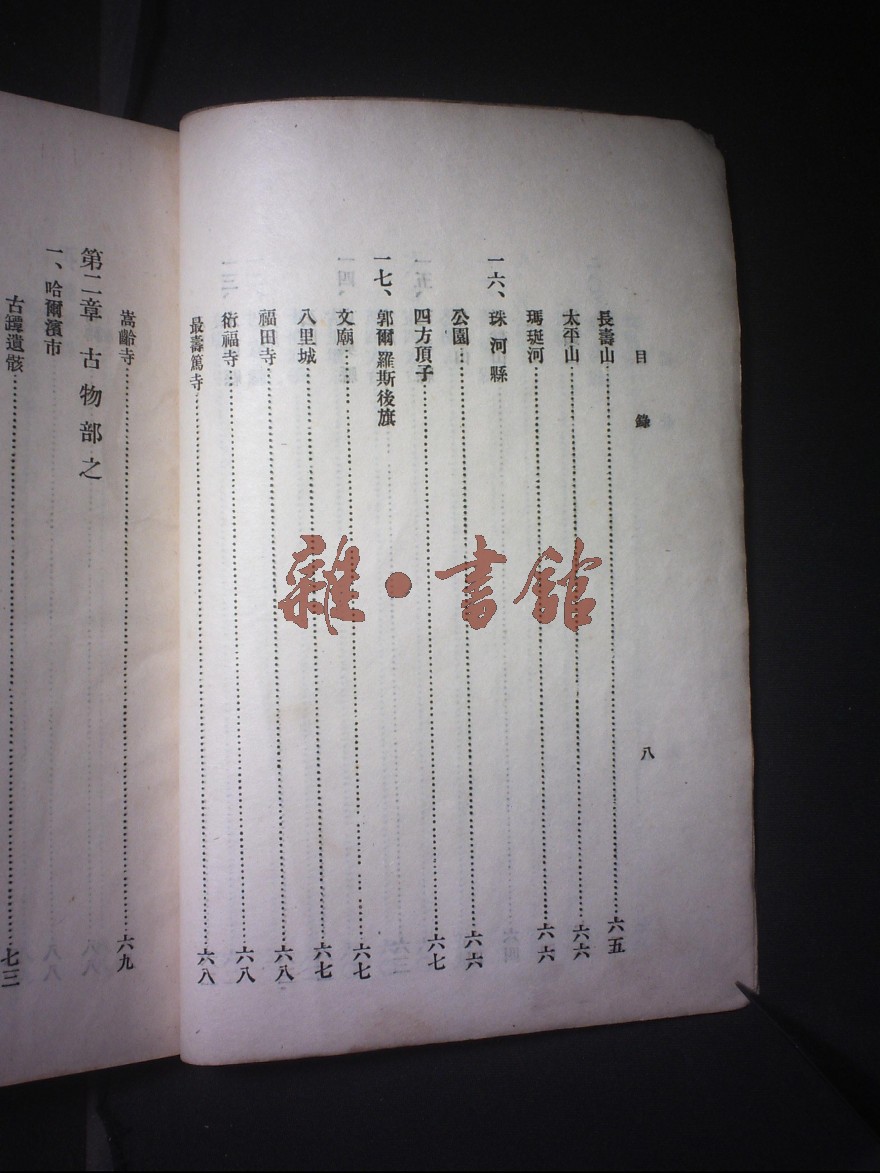 目錄 八
長壽山……六五
太平山……六六
瑪珽河……六六
一六、珠河縣
公園……六六
四方頂子……六七
一七、郭爾羅斯後旗
文廟……六七
八里城……六七
福田寺……六八
衍福寺……六八
最壽篤寺……六八
嵩齡寺……六九
第二章 古物部之
一、哈爾濱市
古蹟遺骸……七三
雜·書館